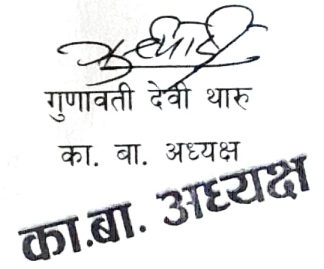 गुणावती देवी थारु
का. बा. अध्यक्ष
का.बा. अध्यक्ष